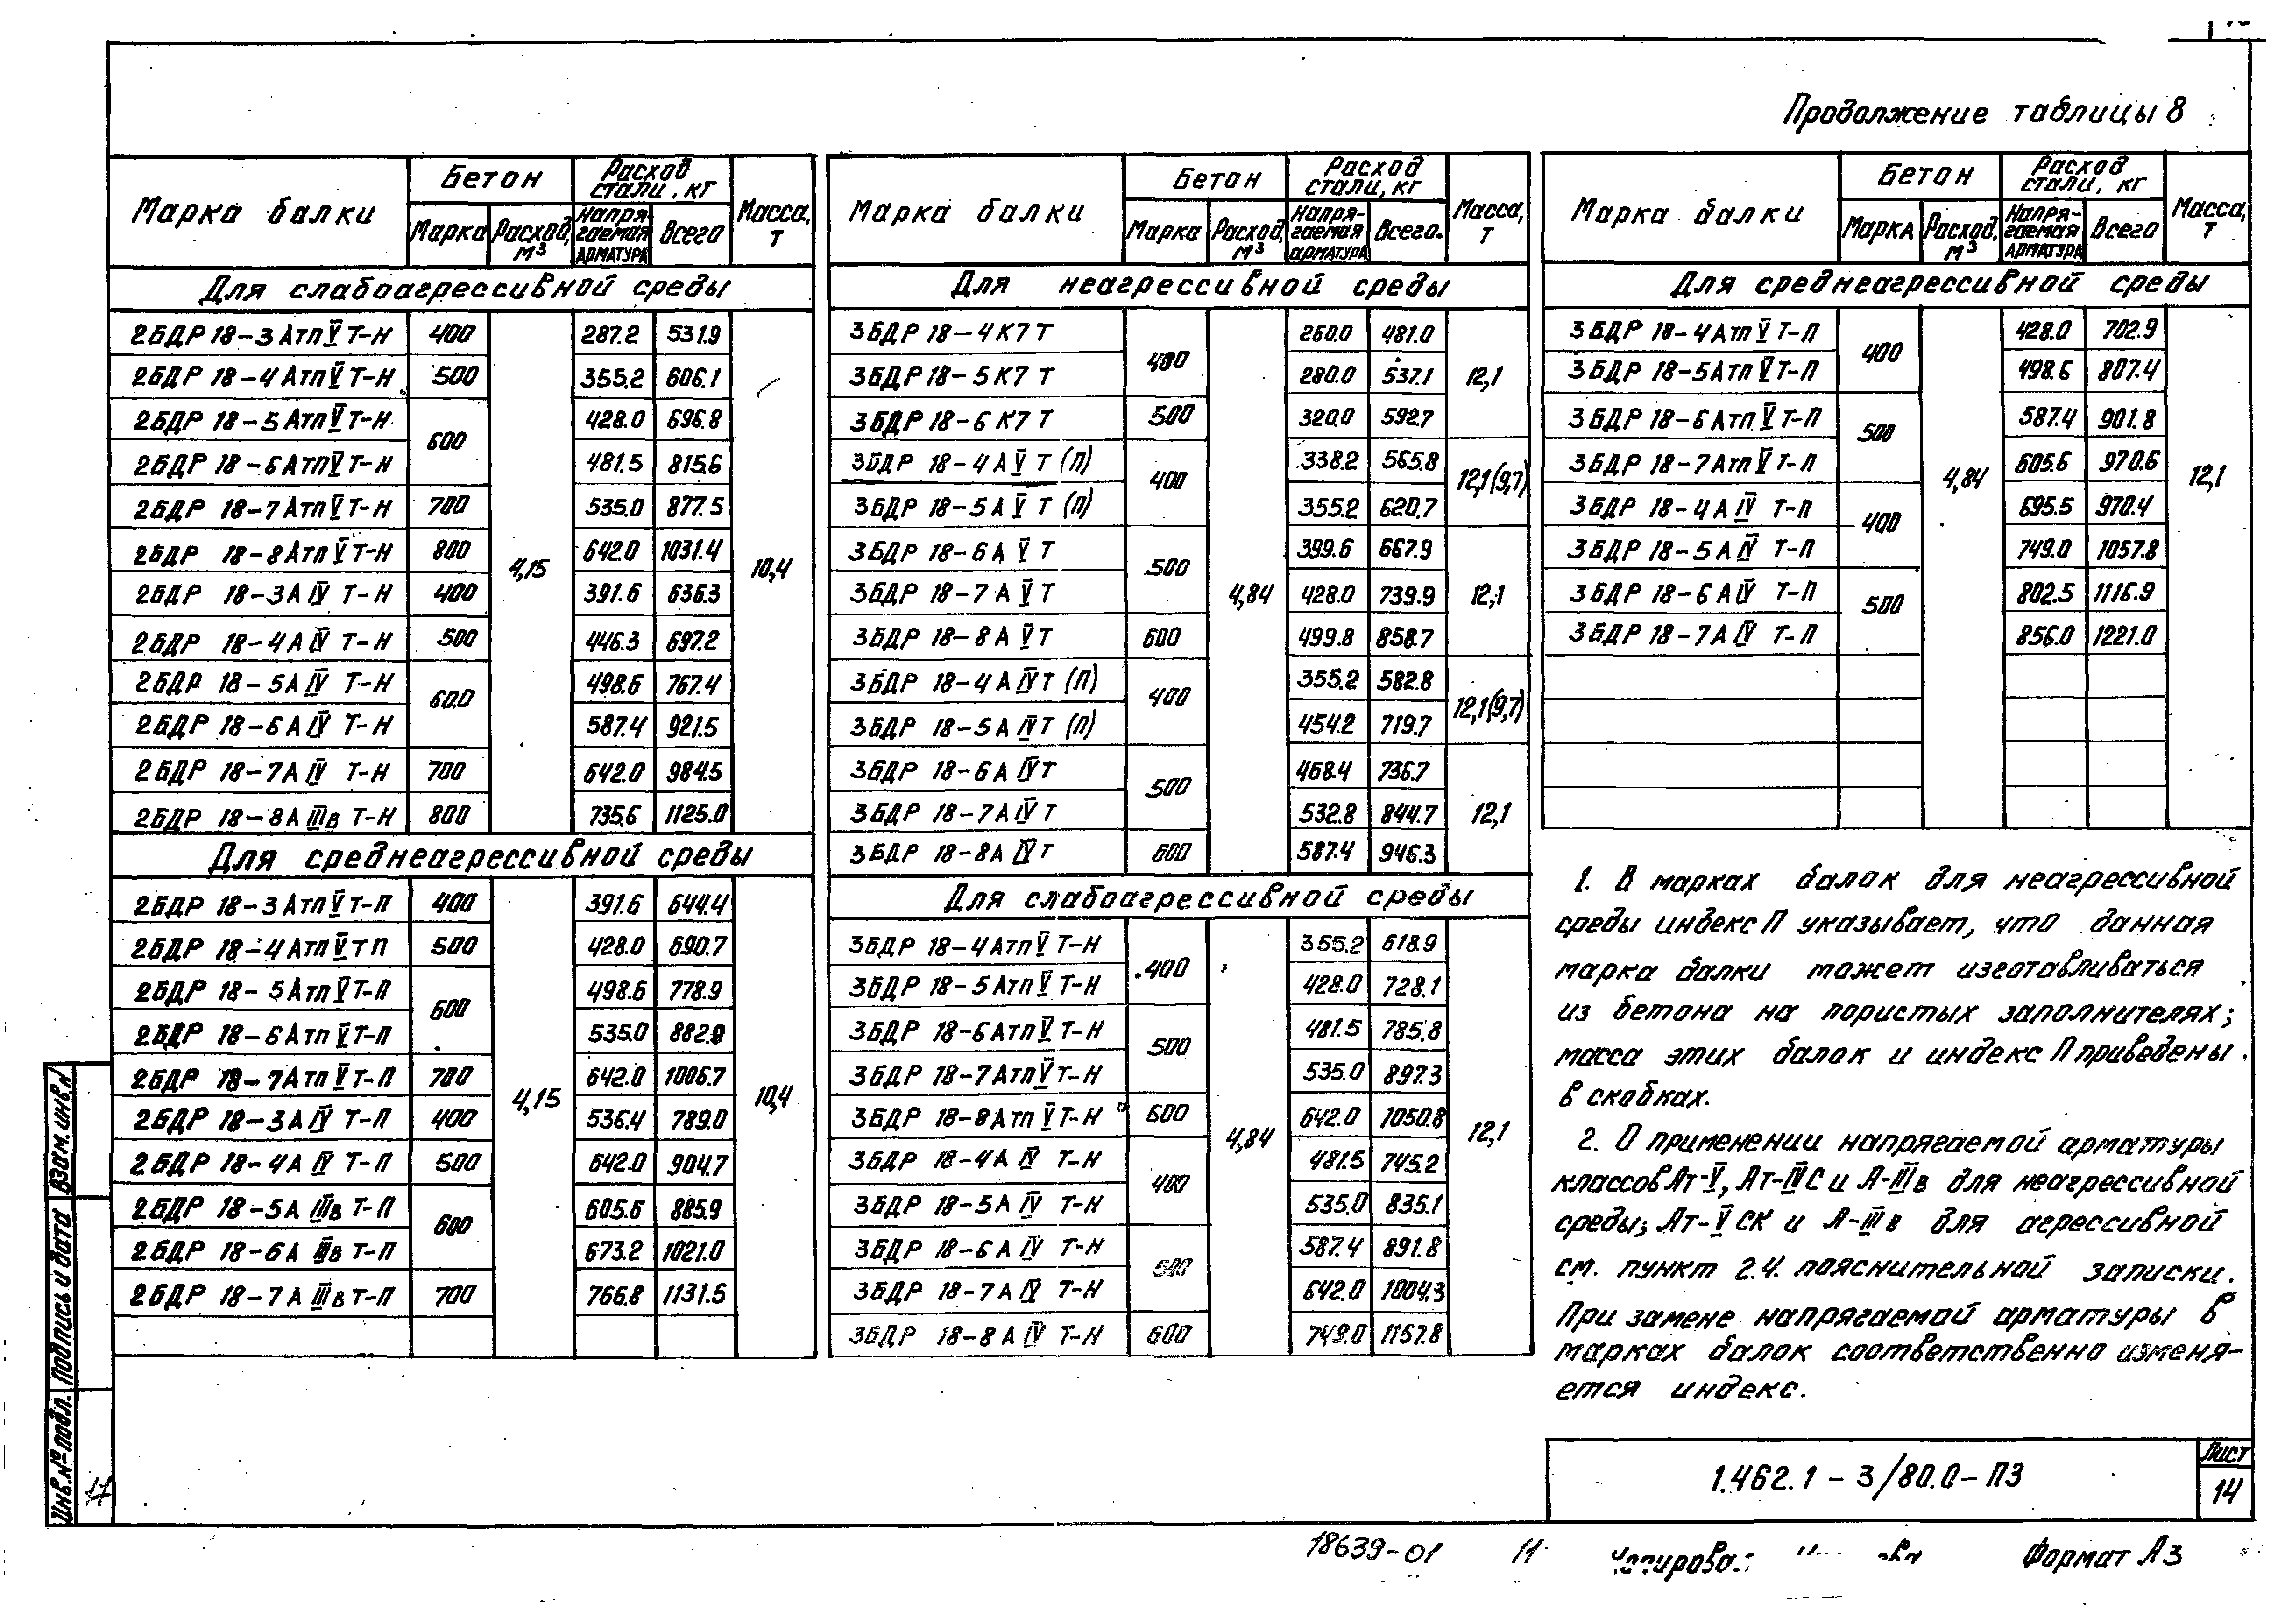 Продолжение таблицы 8
Марка балки
Бетон
Расход стали, кг
Масса, т
Марка
Расход, м³
Напрягаемая арматура
Всего
Для слабоагрессивной среды
2БДР 18-3АтпⅤТ-Н 400 4,15 287.2 531.9 10,4
2БДР 18-4АтпⅤТ-Н 500 355.2 606.1
2БДР 18-5АтпⅤТ-Н 600 428.0 696.8
2БДР 18-6АтпⅤТ-Н 481.5 815.6
2БДР 18-7АтпⅤТ-Н 700 535.0 877.5
2БДР 18-8АтпⅤТ-Н 800 642.0 1031.4
2БДР 18-3АⅣ Т-Н 400 391.6 636.3
2БДР 18-4АⅣ Т-Н 500 446.3 697.2
2БДР 18-5АⅣ Т-Н 600 498.6 767.4
2БДР 18-6АⅣ Т-Н 587.4 921.5
2БДР 18-7АⅣ Т-Н 700 642.0 984.5
2БДР 18-8АⅢв Т-Н 800 735.6 1125.0
Для среднеагрессивной среды
2БДР 18-3АтпⅤТ-П 400 4,15 391.6 644.4 10,4
2БДР 18-4АтпⅤТП 500 428.0 690.7
2БДР 18-5АтпⅤТ-П 600 498.6 778.9
2БДР 18-6АтпⅤТ-П 535.0 882.9
2БДР 18-7АтпⅤТ-П 700 642.0 1006.7
2БДР 18-3АⅣ Т-П 400 536.4 789.0
2БДР 18-4АⅣ Т-П 500 642.0 904.7
2БДР 18-5АⅢв Т-П 600 605.6 885.9
2БДР 18-6АⅢв Т-П 673.2 1021.0
2БДР 18-7АⅢв Т-П 700 766.8 1131.5
Марка балки
Бетон
Расход стали, кг
Масса, т
Марка
Расход, м³
Напрягаемая арматура
Всего.
Для неагрессивной среды
3БДР 18-4К7Т 400 4,84 260.0 481.0 12,1
3БДР 18-5К7Т 280.0 537.1
3БДР 18-6К7Т 500 320.0 592.7
3БДР 18-4АⅤТ(П) 400 338.2 565.8 12,1(9,7)
3БДР 18-5АⅤТ(П) 355.2 620.7
3БДР 18-6АⅤТ 500 399.6 667.9 12,1
3БДР 18-7АⅤТ 428.0 739.9
3БДР 18-8АⅤТ 600 499.8 858.7
3БДР 18-4АⅣТ(П) 400 355.2 582.8 12,1(9,7)
3БДР 18-5АⅣТ(П) 454.2 719.7
3БДР 18-6АⅣТ 500 468.4 736.7 12,1
3БДР 18-7АⅣТ 532.8 844.7
3БДР 18-8АⅣТ 600 587.4 946.3
Для слабоагрессивной среды
3БДР 18-4АтпⅤТ-Н 400 4,84 355.2 618.9 12,1
3БДР 18-5АтпⅤТ-Н 428.0 728.1
3БДР 18-6АтпⅤТ-Н 500 481.5 785.8
3БДР 18-7АтпⅤТ-Н 535.0 897.3
3БДР 18-8АтпⅤТ-Н 600 642.0 1050.8
3БДР 18-4АⅣ Т-Н 400 481.5 745.2
3БДР 18-5АⅣ Т-Н 535.0 835.1
3БДР 18-6АⅣ Т-Н 500 587.4 891.8
3БДР 18-7АⅣ Т-Н 642.0 1004.3
3БДР 18-8АⅣ Т-Н 600 749.0 1157.8
Марка балки
Бетон
Расход стали, кг
Масса, т
Марка
Расход, м³
Напрягаемая арматура
Всего
Для среднеагрессивной среды
3БДР 18-4АтпⅤТ-П 400 4,84 428.0 702.9 12,1
3БДР 18-5АтпⅤТ-П 498.6 807.4
3БДР 18-6АтпⅤТ-П 500 587.4 901.8
3БДР 18-7АтпⅤТ-П 605.6 970.6
3БДР 18-4АⅣ Т-П 400 695.5 970.4
3БДР 18-5АⅣ Т-П 749.0 1057.8
3БДР 18-6АⅣ Т-П 500 802.5 1116.9
3БДР 18-7АⅣ Т-П 856.0 1221.0
1. В марках балок для неагрессивной
среды индекс П указывает, что данная
марка балки может изготавливаться
из бетона на пористых заполнителях;
масса этих балок и индекс П приведены
в скобках.
2. О применении напрягаемой арматуры
классов Ат-Ⅴ, Ат-ⅣС и А-Ⅲв для неагрессивной
среды; Ат-ⅤСК и А-Ⅲв для агрессивной
см. пункт 2.4. пояснительной записки.
При замене напрягаемой арматуры в
марках балок соответственно изменя-
ется индекс.
1.462.1-3/80.0-ПЗ
Лист
14
Инв.№подл. Подпись и дата Взам.инв.№
17
18639-01 11
Формат А3